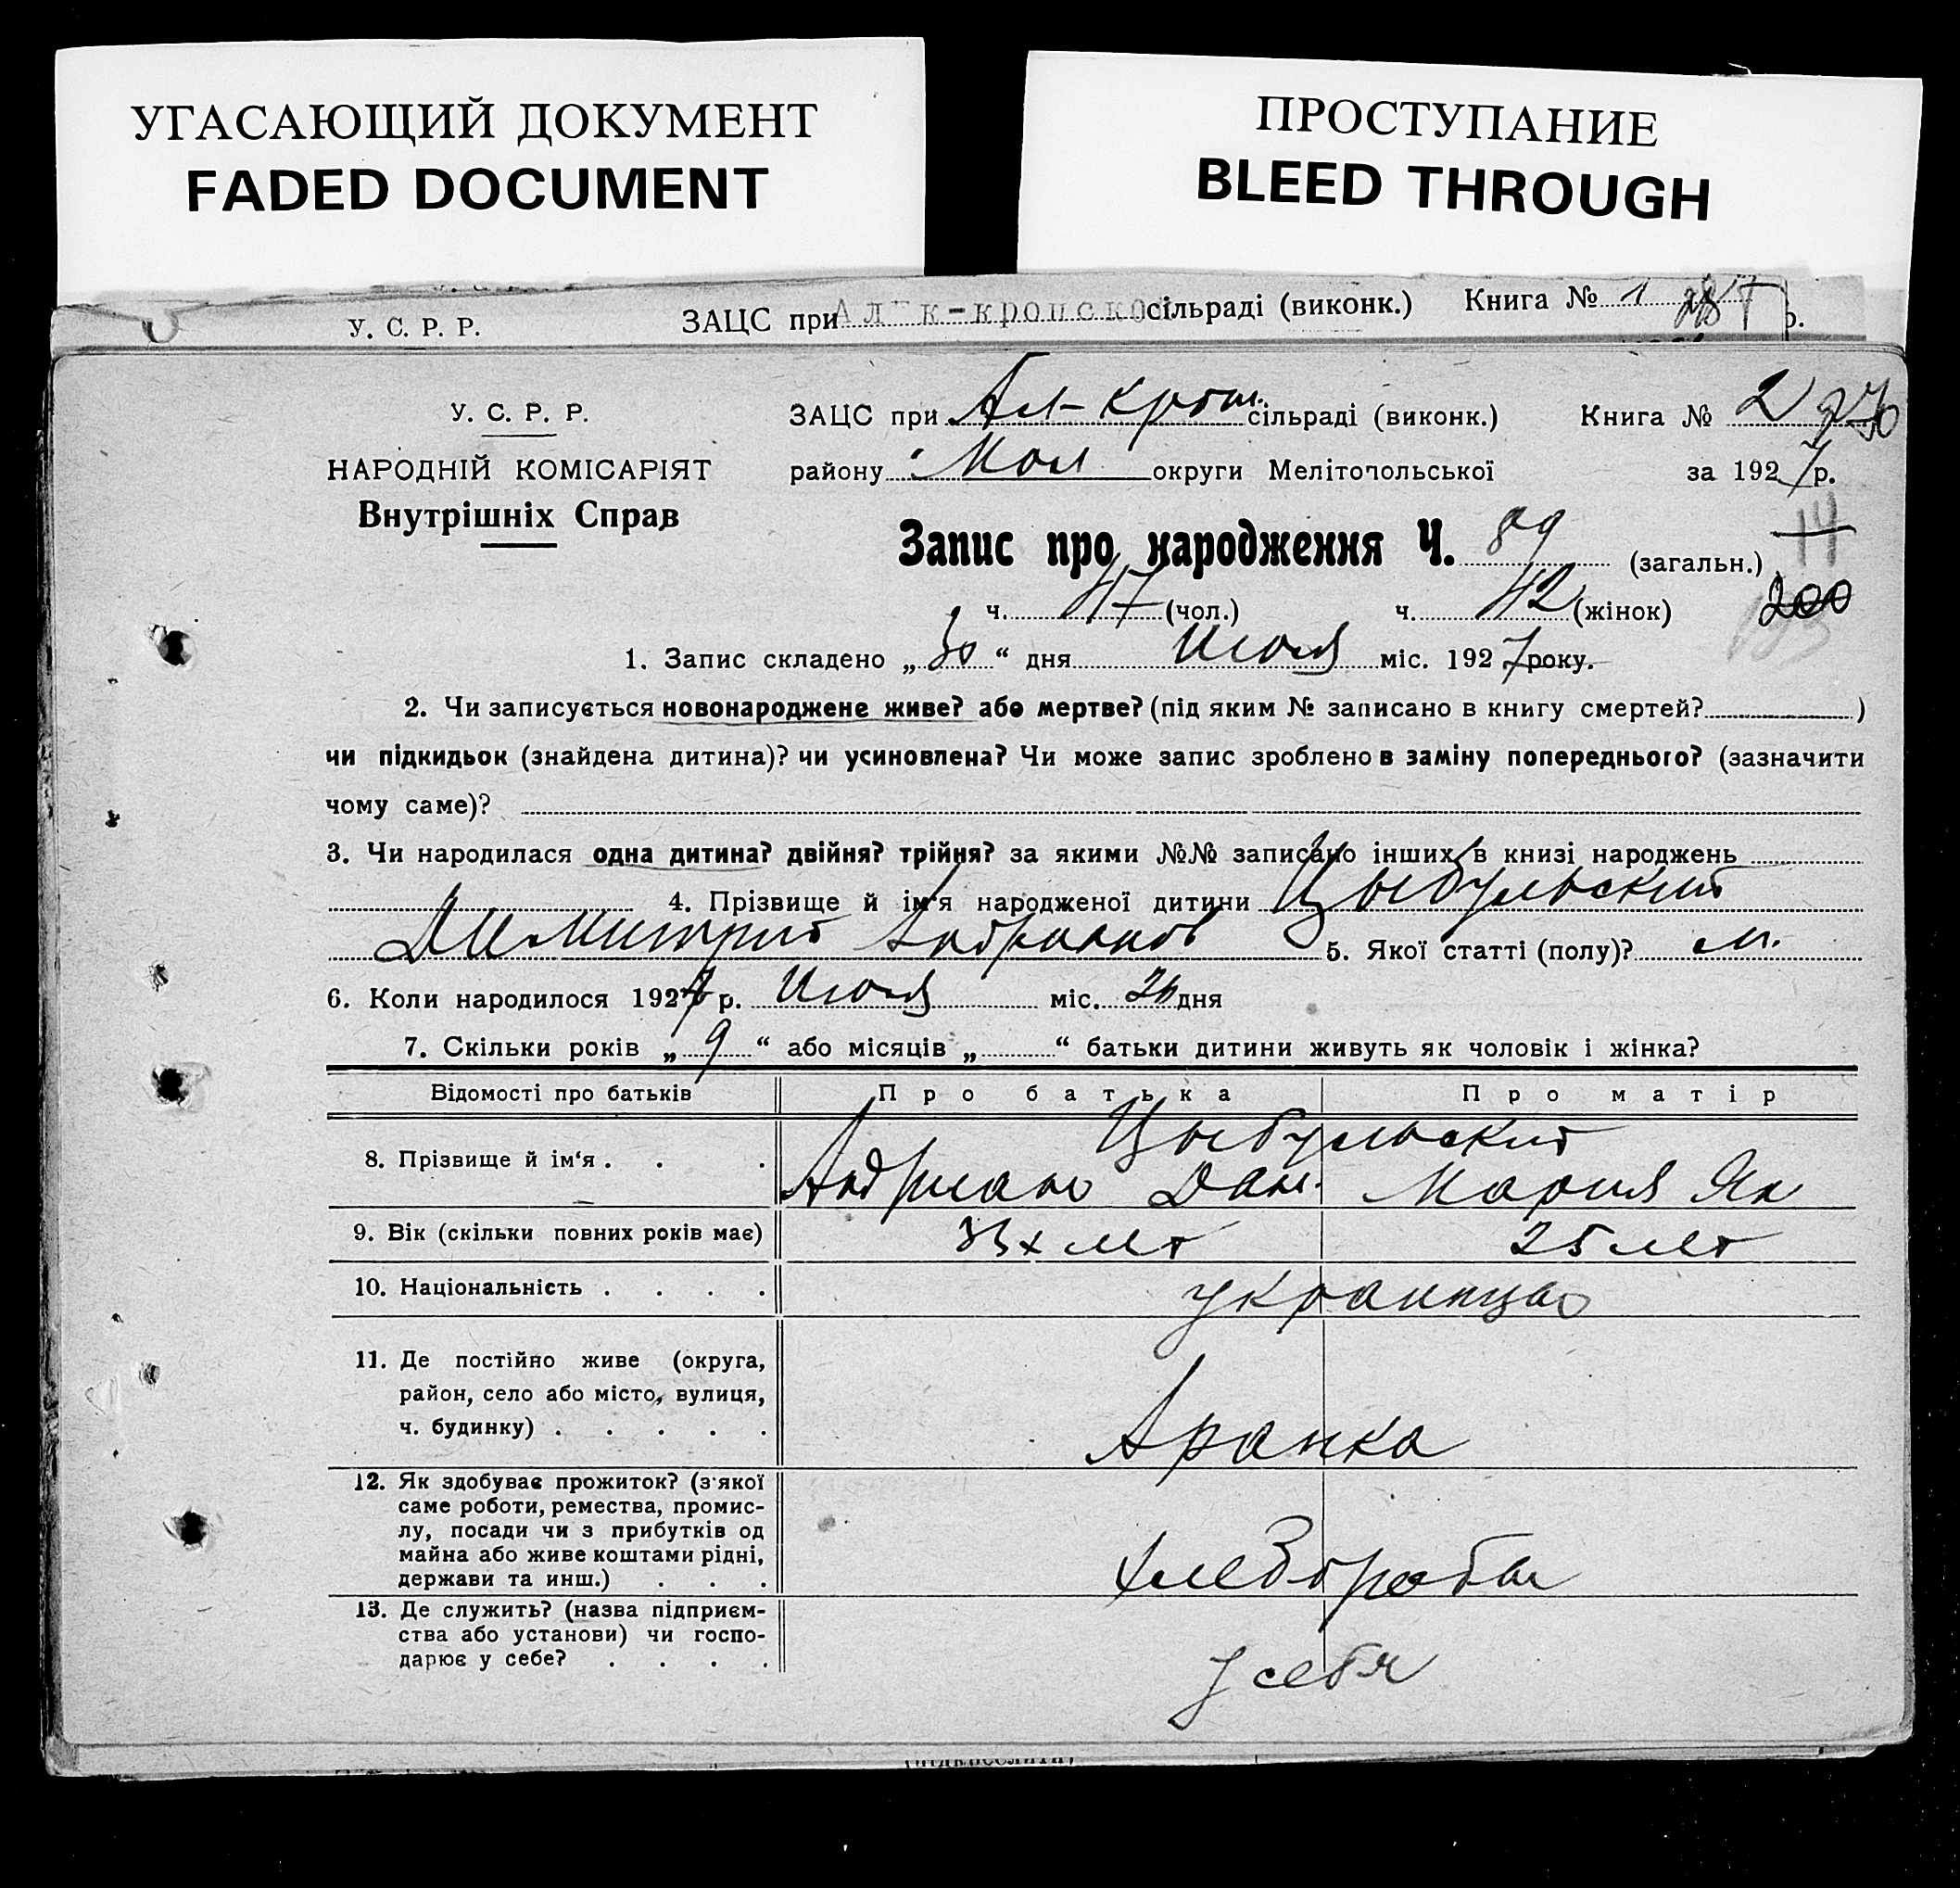 УГАСАЮЩИЙ ДОКУМЕНТ
FADED DOCUMENT
ПРОСТУПАНИЕ
BLEED THROUGH
У. С. Р. Р. ЗАЦС при сільраді (виконк.) Книга № 1
У. С. Р. Р. ЗАЦС при Ал-Крот. сільраді (виконк.) Книга № 2
НАРОДНІЙ КОМІСАРІЯТ району Мол округи Мелітопольської за 1927 р.
Внутрішніх Справ
Запис про народження Ч. 89 (загальн.) 14
ч. 47 (чол.) ч. 42 (жінок) 200
1. Запис складено „30“ дня Июля міс. 1927 року.
2. Чи записується новонароджене живе? або мертве? (під яким № записано в книгу смертей? )
чи підкидьок (знайдена дитина)? чи усиновлена? Чи може запис зроблено в заміну попереднього? (зазначити
чому саме)?
3. Чи народилася одна дитина? двійня? трійня? за якими №№ записано інших в книзі народжень
4. Прізвище й ім'я народженої дитини Цыбульский
Димитрий Андрианов 5. Якої статті (полу)? м.
6. Коли народилося 1927 р. Июля міс. 26 дня
7. Скільки років „9“ або місяців „ “ батьки дитини живуть як чоловік і жінка?
Відомості про батьків Про батька Про матір
Цыбульский
8. Прізвище й ім'я . . . Андриан Дан. Мария Як
9. Вік (скільки повних років має) 33х лет 25 лет
10. Національність . . . . украинцы
11. Де постійно живе (округа,
район, село або місто, вулиця,
ч. будинку) . . . . . Аранка
12. Як здобуває прожиток? (з'якої
саме роботи, ремества, промис-
лу, посади чи з прибутків од
майна або живе коштами рідні,
держави та инш.) . . . хлебороб
13. Де служить? (назва підприєм-
ства або установи) чи госпо-
дарює у себе? . . . . у себя